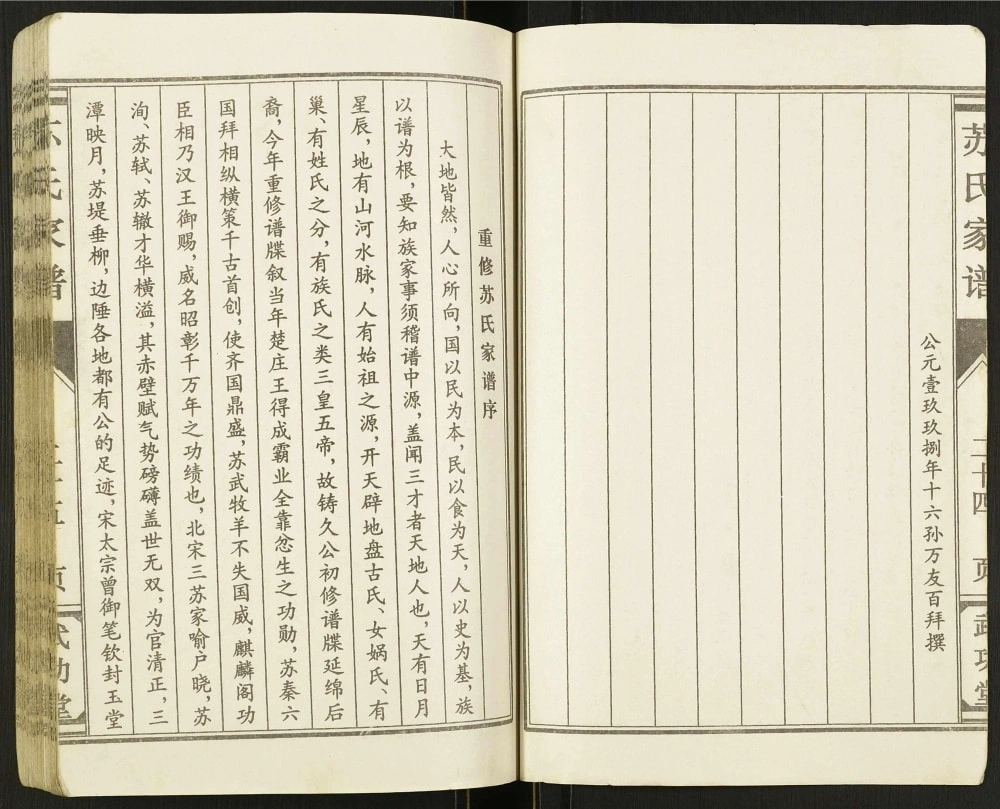 苏氏家谱
二十四 页
武功堂
公元壹玖玖捌年十六孙万友百拜撰
重修苏氏家谱序
大地皆然，人心所向，国以民为本，民以食为天，人以史为基，族
以谱为根，要知族家事须稽谱中源，盖闻三才者天地人也，天有日月
星辰，地有山河水脉，人有始祖之源，开天辟地盘古氏、女娲氏、有
巢、有姓氏之分，有族氏之类三皇五帝，故铸久公初修谱牒延绵后
裔，今年重修谱牒叙当年楚庄王得成霸业全靠忿生之功勋，苏秦六
国拜相纵横策千古首创，使齐国鼎盛，苏武牧羊不失国威，麒麟阁功
臣相乃汉王御赐，威名昭彰千万年之功绩也，北宋三苏家喻户晓，苏
洵、苏轼、苏辙才华横溢，其赤壁赋气势磅礴盖世无双，为官清正，三
潭映月，苏堤垂柳，边陲各地都有公的足迹，宋太宗曾御笔钦封玉堂
氏家谱
页
武功堂